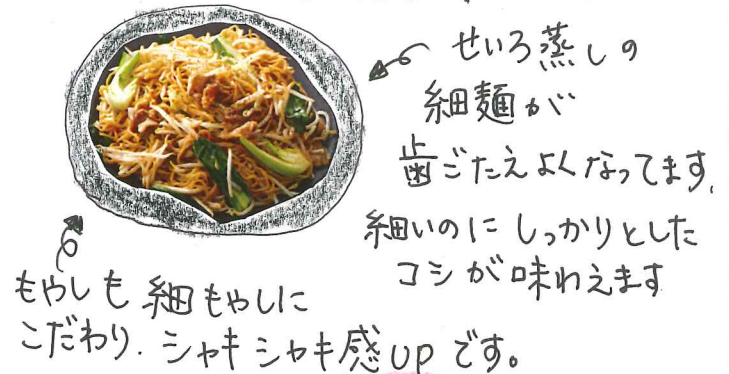 せいろ蒸しの
細麺が
歯ごたえよくなってます。
細いのにしっかりとした
コシが味わえます
もやしも細もやしに
こだわり.シャキシャキ感UPです。